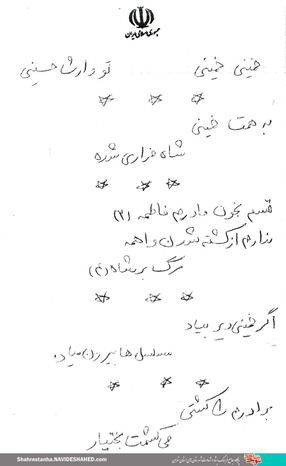 جمهوری اسلامی ایران
خمینی خمینی تو وارث حسینی
به همت خمینی
شاه فراری شده
قسم بخون مادرم فاطمه (۳)
ندارم از کشته شدن واهمه
مرگ بر شاه (۴)
اگر خمینی دیر بیاد
مسلسل ها بیرون میاد
برادرم را کشتی
می کشمت بختیار
Shahrestanha.NAVIDESHAHED.com